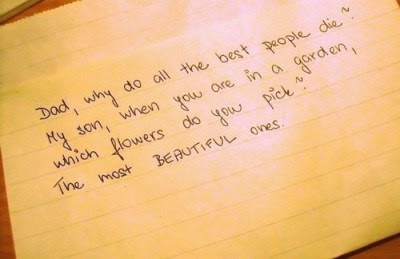 Dad, why do all the best people die?
My son, when you are in a garden,
which flowers do you pick?
The most BEAUTIFUL ones.